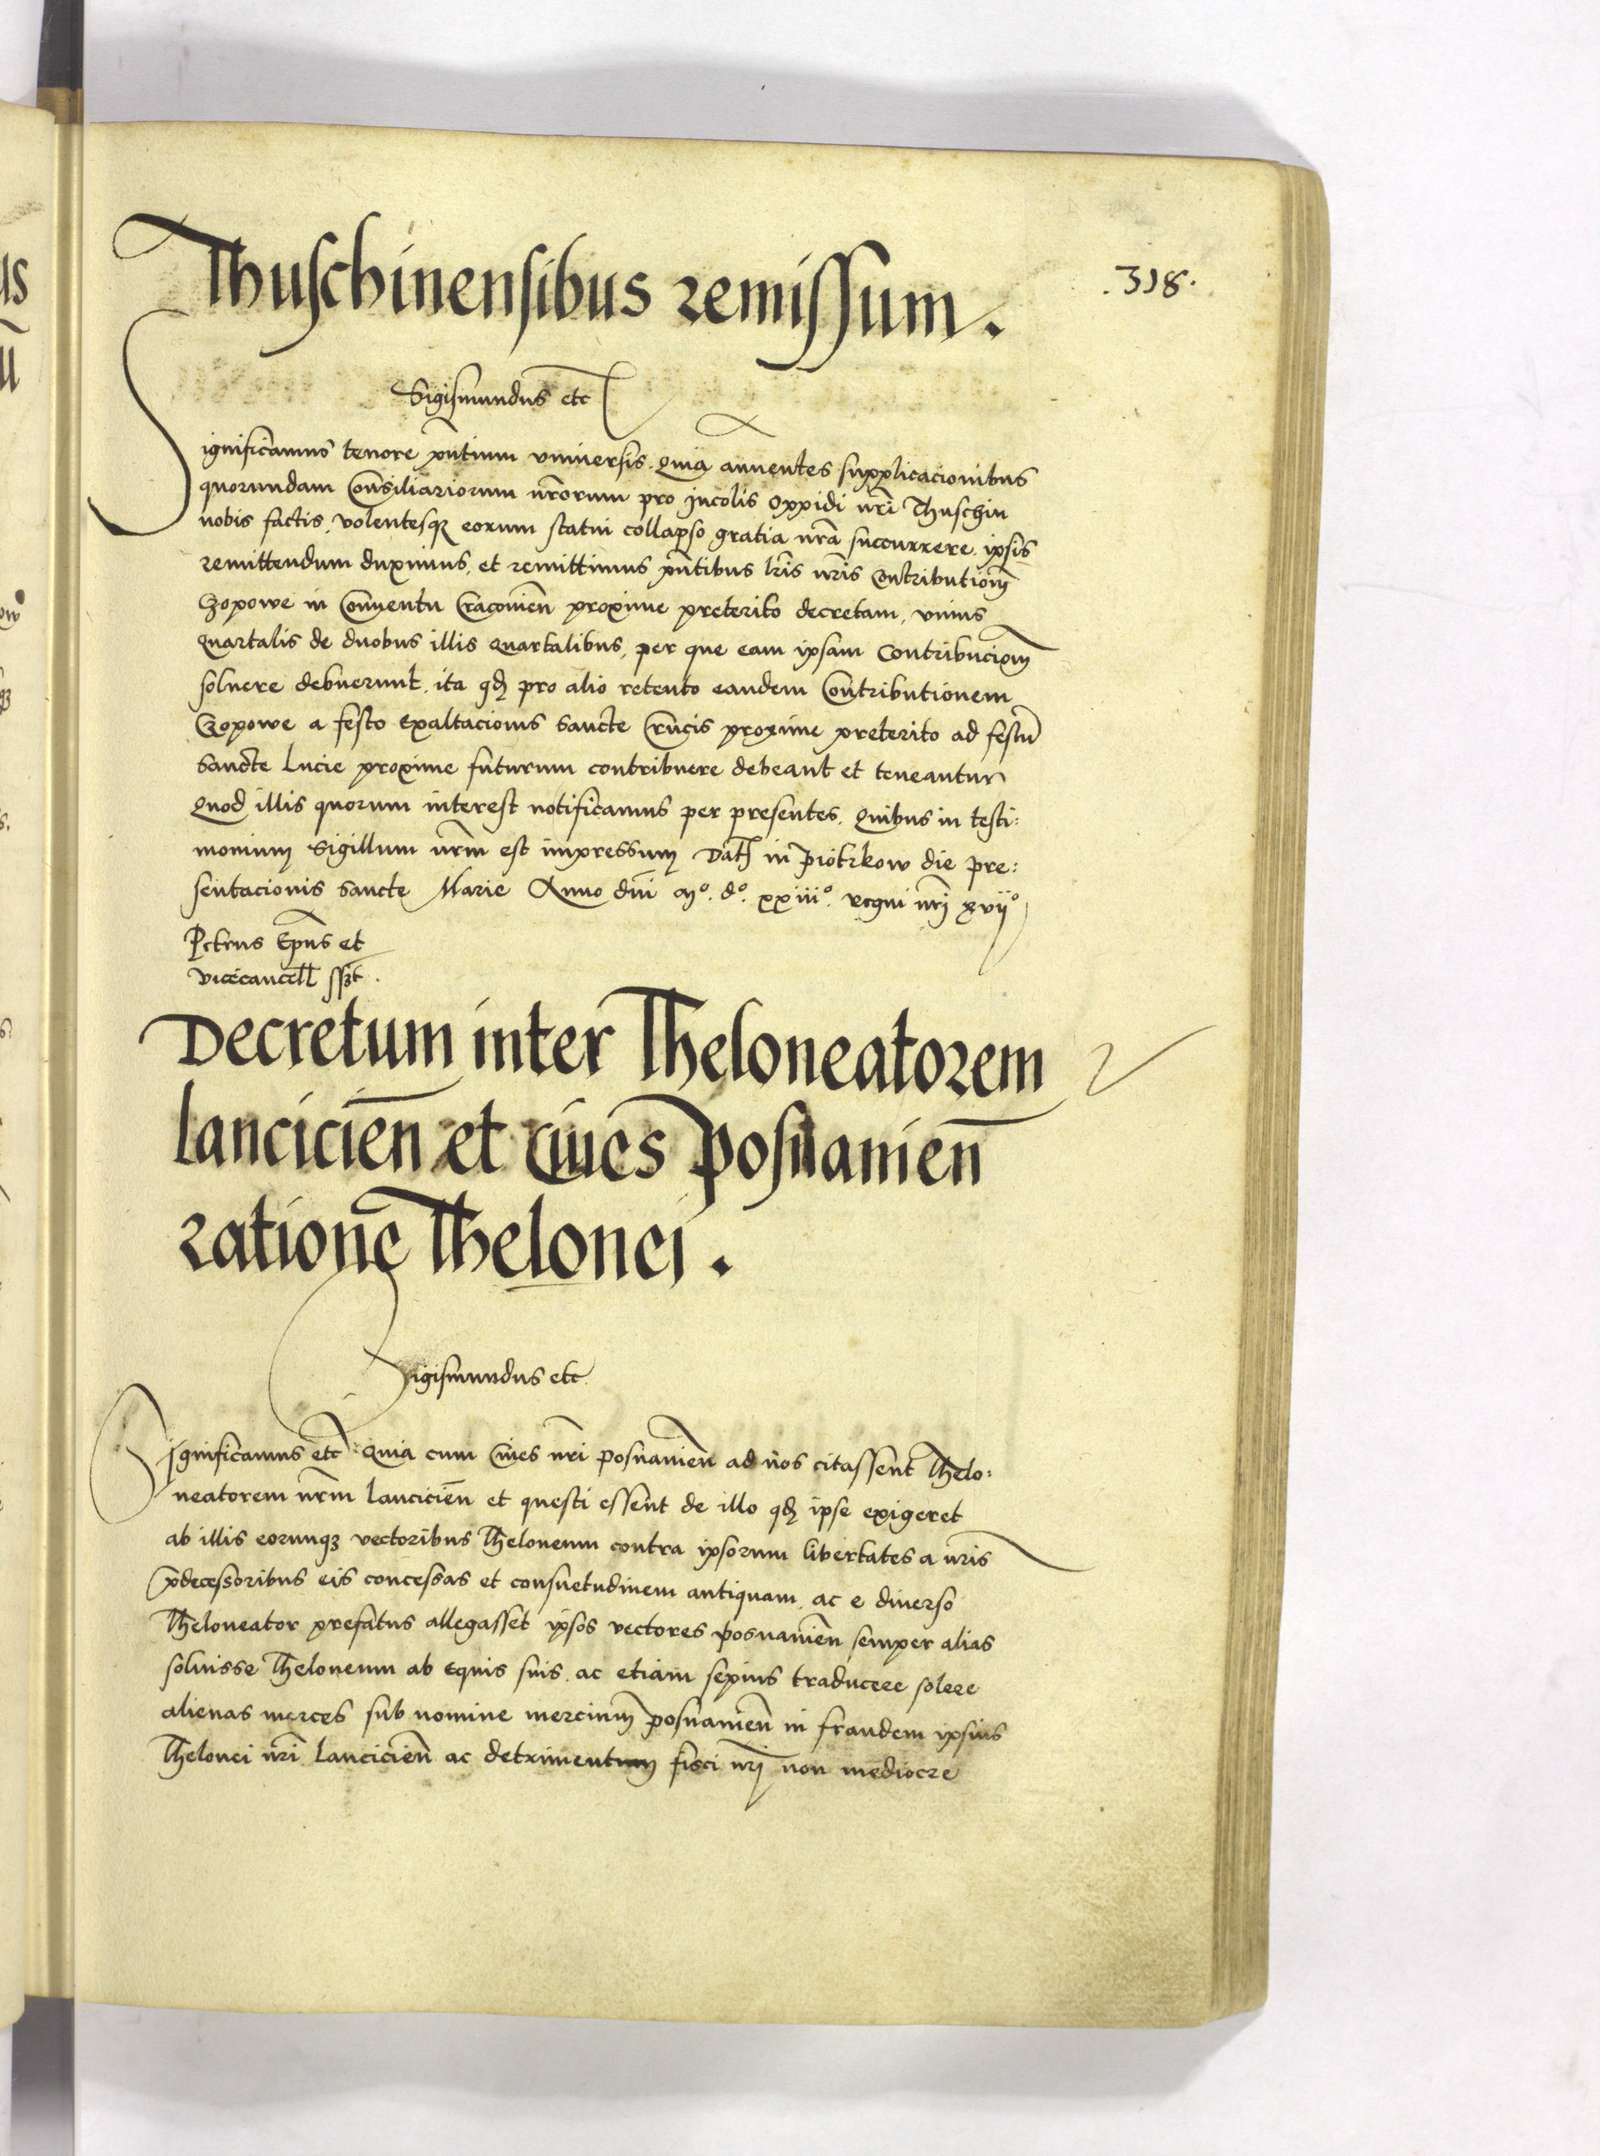 Thuschinensibus remissum.
.318.
Sigismundus etc
Significamus tenore pñtium vniuersis. Quia annuentes supplicacionibus
quorundam Consiliariorum nrorum pro Incolis Oppidi nri Thuschin
nobis factis, volentesq3 eorum statui collapso gratia nra succurrere. ipsis
remittendum duximus, et remittimus pñtibus lris nris Contributionẽ
Czopowe in Conuentu Cracouien proxime preterito decretam, vnius
Quartalis de duobus illis Quartalibus, per que eam ipsam Contribucionẽ
soluere debuerunt, ita qd pro alio retento eandem Contributionem
Czopowe a festo Exaltacionis Sancte Crucis proxime preterito ad festũ
Sancte Lucie proxime futurum contribuere debeant et teneantur
Quod illis quorum interest notificamus per presentes. Quibus in testi:
monium Sigillum nrm est impressum Dat in Piotrkow die pre:
sentacionis Sancte Marie Anno dni Mº. dº. xxiiiº. regni nri xvijº
Petrus Epus et
vicecancell sst.
Decretum inter Theloneatorem
Lancicien et Ciues Posnanien
ratione Thelonei.
Sigismundus etc
Significamus etc Quia cum Ciues nri Posnanien ad nos citassent Thelo:
neatorem nrm Lancicien et questi essent de illo qd ipse exigeret
ab illis eorumq3 vectoribus Theloneum contra ipsorum libertates a nris
pdecessoribus eis concessas et consuetudinem antiquam. ac e diuerso
Theloneator prefatus allegasset ipsos vectores Posnanien semper alias
soluisse Theloneum ab Equis suis. ac etiam sepius traducere solere
alienas merces sub nomine mercium Posnanien in fraudem ipsius
Thelonei nri Lancicien ac detrimentum fisci nri non mediocre